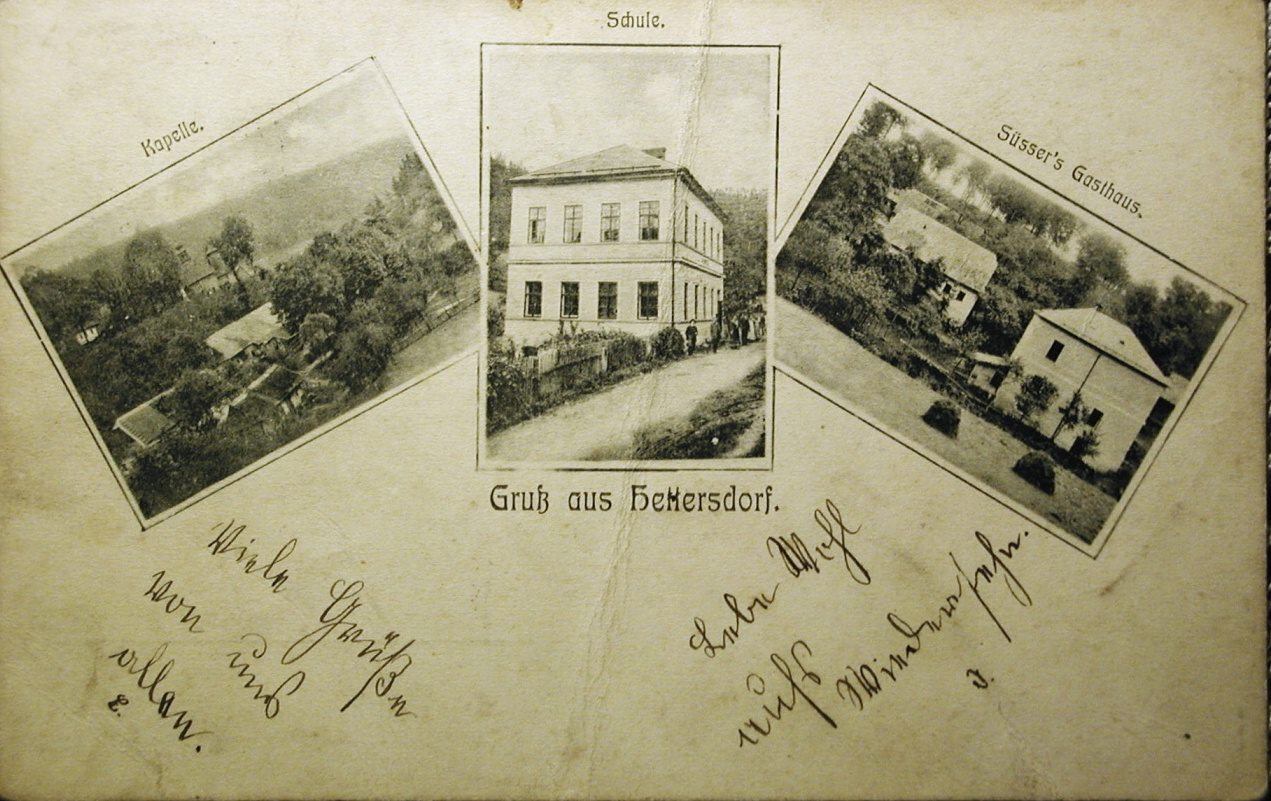 Schule.
Kapelle.
Süsser's Gasthaus.
Gruß aus Hettersdorf.
Viele Grüße
von uns
allen.
Lebe Wohl
aufs Wiedersehn.